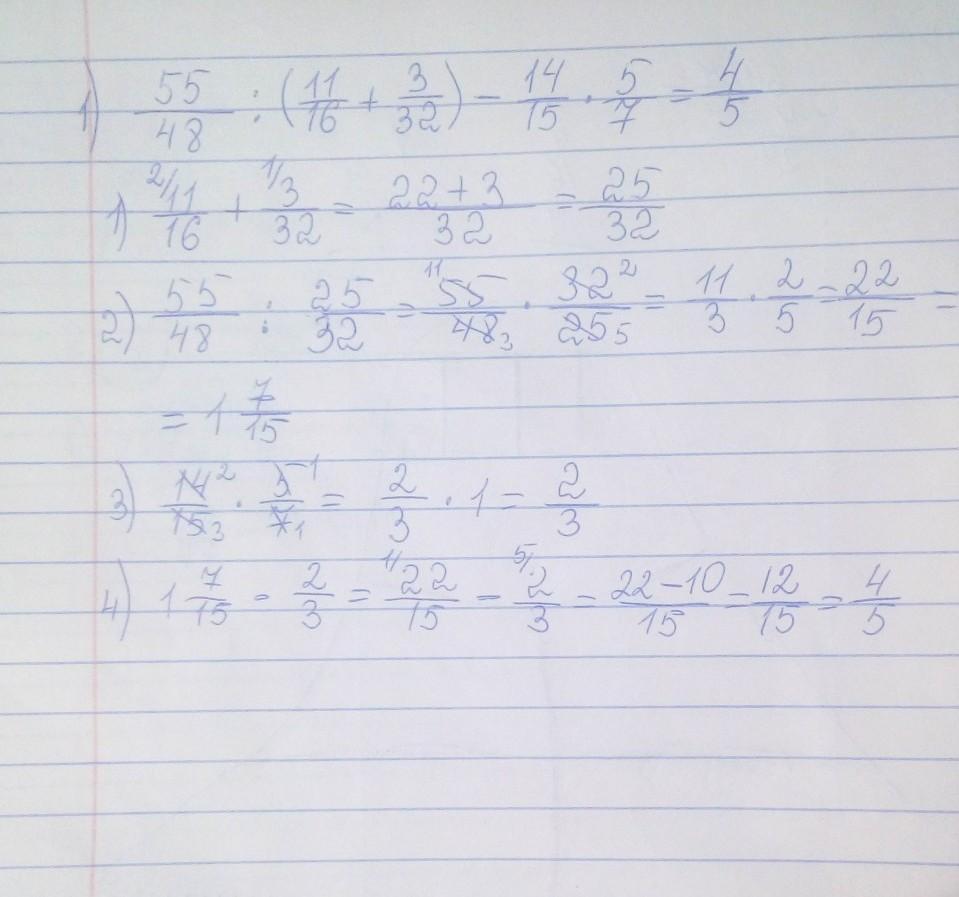 1) 55/48 : (11/16 + 3/32) - 14/15 · 5/7 = 4/5
1) 2/ 11/16 + 1/ 3/32 = 22+3/32 = 25/32
2) 55/48 : 25/32 = 11 55/48 3 · 32 2/25 5 = 11/3 · 2/5 = 22/15 =
= 1 7/15
3) 14 2/15 3 · 5 1/7 1 = 2/3 · 1 = 2/3
4) 1 7/15 - 2/3 = 1/ 22/15 - 5/ 2/3 = 22-10/15 = 12/15 = 4/5